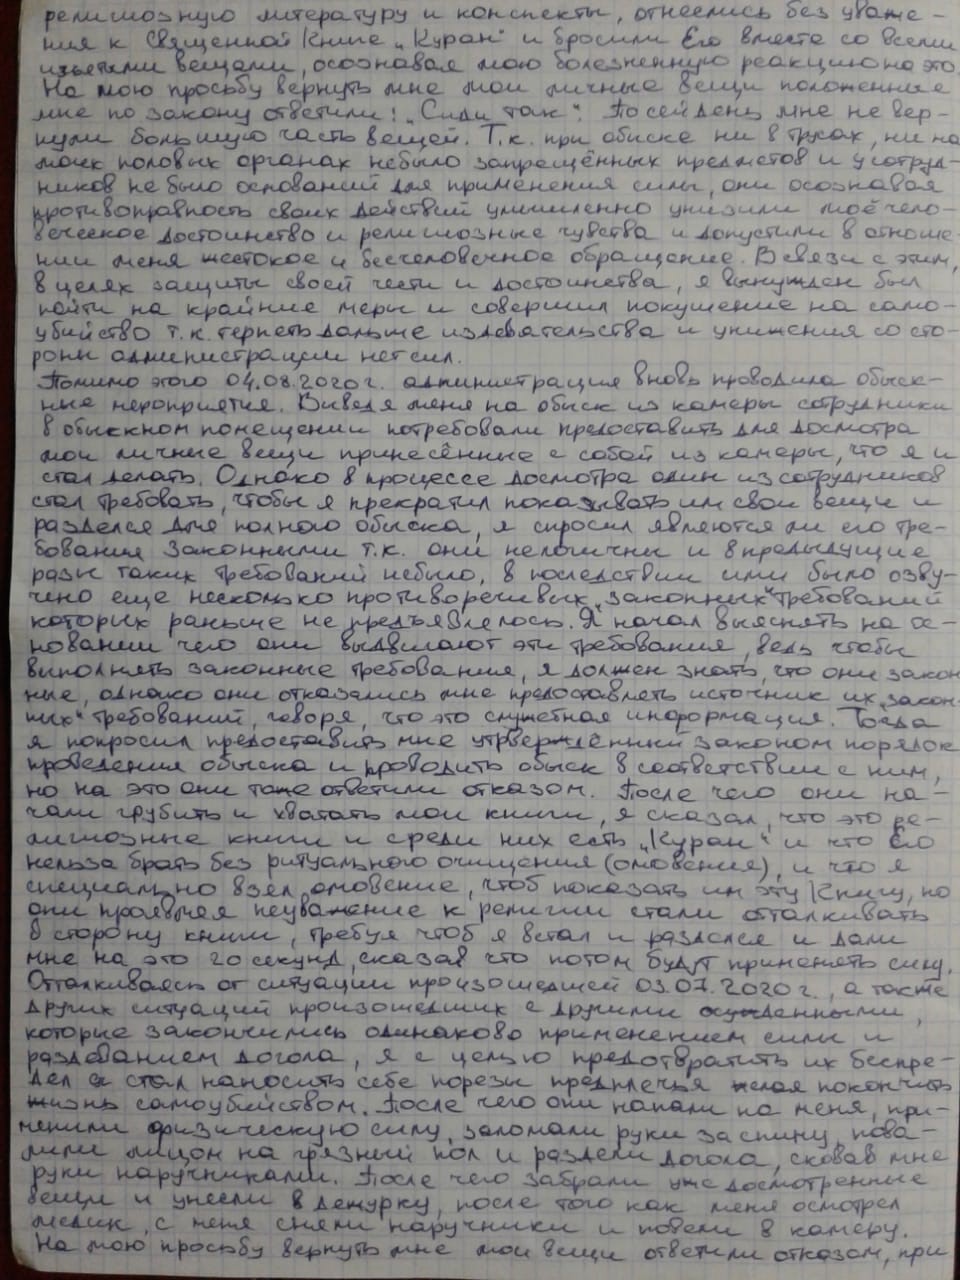 религиозную литературу и конспекты, отнеслись без уваже-
ния к Священной Книге „Куран" и бросили Его вместе со всеми
изъятыми вещами, осознавая мою болезненную реакцию на это.
На мою просьбу вернуть мне мои личные вещи положенные
мне по закону ответили: „Сиди так". По сей день мне не вер-
нули большую часть вещей. Т.к. при обыске ни в трусах, ни на
моих половых органах небыло запрещённых предметов и у сотруд-
ников не было оснований для применения силы, они осознавая
противоправность своих действий умышленно унизили моё чело-
веческое достоинство и религиозные чувства и допустили в отноше-
нии меня жестокое и бесчеловечное обращение. В связи с этим,
в целях защиты своей чести и достоинства, я вынужден был
пойти на крайние меры и совершил покушение на само-
убийство т.к. терпеть дальше издевательства и унижения со сто-
роны администрации нет сил.
Помимо этого 04.08.2020г. администрация вновь проводила обыск-
ные мероприятия. Выведя меня на обыск из камеры сотрудники
в обыскном помещении потребовали предоставить для досмотра
мои личные вещи принесённые с собой из камеры, что я и
стал делать. Однако в процессе досмотра один из сотрудников
стал требовать, чтобы я прекратил показывать им свои вещи и
разделся для полного обыска, я спросил являются ли его тре-
бования законными т.к. они нелогичны и в предыдущие
разы таких требований небыло, в последствии ими было озву-
чено еще несколько противоречивых „законных" требований
которых раньше не предъявлялось. Я начал выяснять на ос-
новании чего они выдвигают эти требования, ведь чтобы
выполнять законные требования, я должен знать, что они закон-
ные, однако они отказались мне предоставлять источник их „закон-
ных" требований, говоря, что это служебная информация. Тогда
я попросил предоставить мне утверждённый законом порядок
проведения обыска и проводить обыск в соответствии с ним,
но на это они тоже ответили отказом. После чего они на-
чали грубить и хватать мои книги, я сказал, что это ре-
лигиозные книги и среди них есть „Куран" и что Его
нельза брать без ритуального очищения (омовения), и что я
специально взял омовение, чтоб показать им эту Книгу, но
они проявляя неуважение к религии стали отталкивать
в сторону книги, требуя чтоб я встал и разделся и дали
мне на это 20 секунд, сказав что потом будут применять силу.
Отталкиваясь от ситуации произошедшей 03.07.2020г., а также
других ситуаций произошедших с другими осужденными,
которые закончились одинаково применением силы и
раздеванием догола, я с целью предотвратить их беспре-
дел стал наносить себе порезы предплечья желая покончить
жизнь самоубийством. После чего они напали на меня, при-
менили физическую силу, заломали руки за спину, пова-
лили лицом на грязный пол и раздели догола, сковав мне
руки наручниками. После чего забрали уже досмотренные
вещи и унесли в дежурку, после того как меня осмотрел
медик, с меня сняли наручники и повели в камеру.
На мою просьбу вернуть мне мои вещи ответили отказом, при